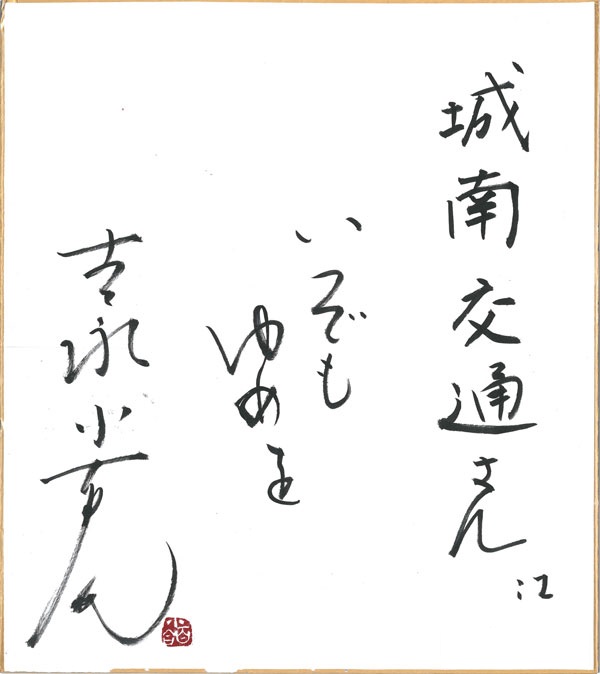 城南交通さん江
いつでも
ゆめを
吉永小百合
小百合